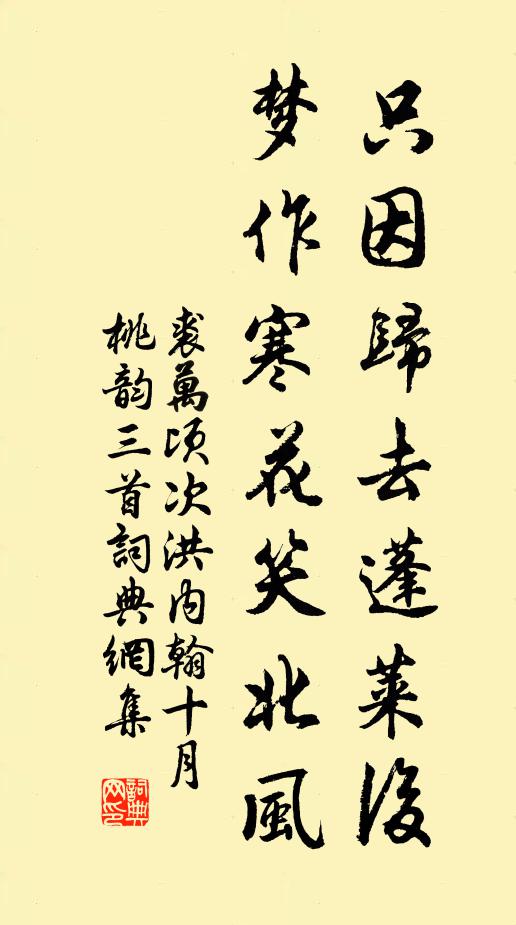 只因歸去蓬萊後
梦作寒花笑北風
裘萬頃次洪内翰十月
桃韵三首詞典網集
詞典
网印